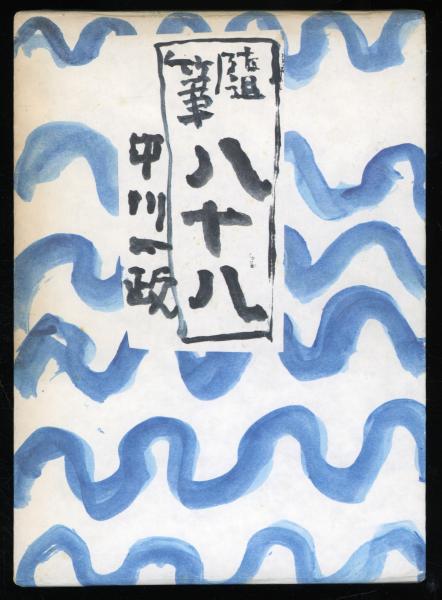 随筆八十八
中川一政